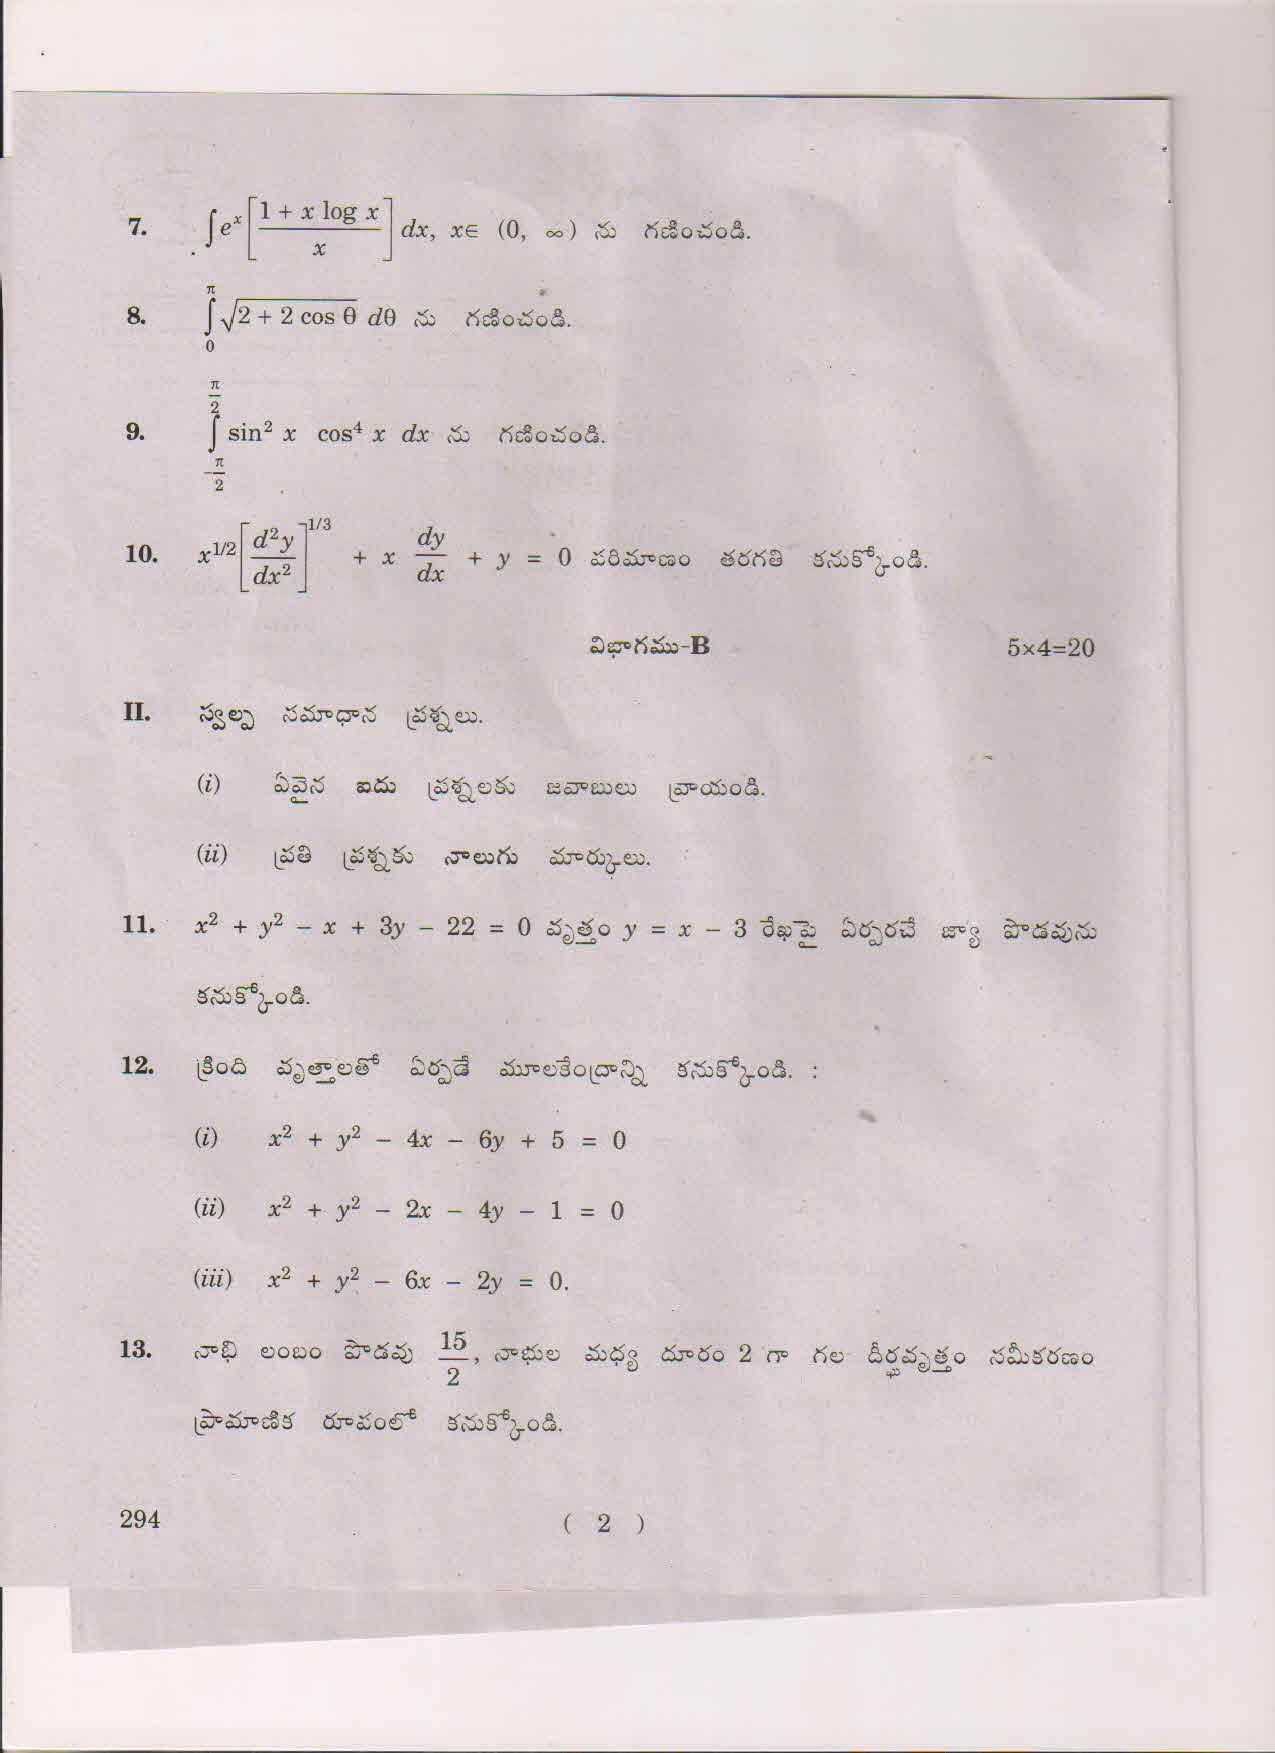 7. ∫e^x [(1 + x log x)/x] dx, x∈ (0, ∞) ను గణించండి.
8. ∫_0^π √(2 + 2 cos θ) dθ ను గణించండి.
9. ∫_{-π/2}^{π/2} sin² x cos⁴ x dx ను గణించండి.
10. x^{1/2} [d²y/dx²]^{1/3} + x dy/dx + y = 0 పరిమాణం తరగతి కనుక్కోండి.
విభాగము-B 5×4=20
II. స్వల్ప సమాధాన ప్రశ్నలు.
(i) ఏవైన ఐదు ప్రశ్నలకు జవాబులు వ్రాయండి.
(ii) ప్రతి ప్రశ్నకు నాలుగు మార్కులు.
11. x² + y² − x + 3y − 22 = 0 వృత్తం y = x − 3 రేఖపై ఏర్పరచే జ్యా పొడవును
కనుక్కోండి.
12. క్రింది వృత్తాలతో ఏర్పడే మూలకేంద్రాన్ని కనుక్కోండి. :
(i) x² + y² − 4x − 6y + 5 = 0
(ii) x² + y² − 2x − 4y − 1 = 0
(iii) x² + y² − 6x − 2y = 0.
13. నాభి లంబం పొడవు 15/2, నాభుల మధ్య దూరం 2 గా గల దీర్ఘవృత్తం సమీకరణం
ప్రామాణిక రూపంలో కనుక్కోండి.
294 ( 2 )